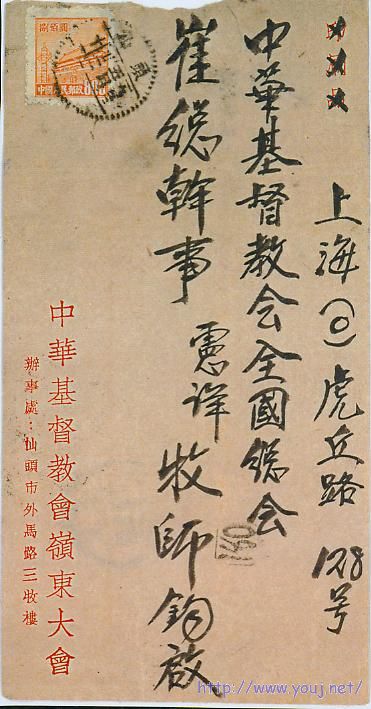 上海(0)虎丘路128号
中華基督教会全國總会
崔總幹事 憲详 牧師鈞啟
中華基督教會嶺東大會
辦事處：汕頭市外馬路三牧樓
捌佰圓
中國人民郵政 800
(40)
http://www.youj.net/